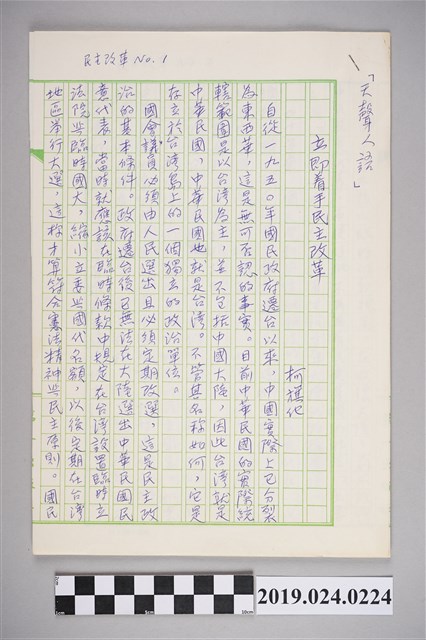 民主改革 No. 1
「天聲人語」
立即着手民主改革
柯旗化
自從一九五〇年國民政府遷台以來，中國實際上已分裂
為東西華，這是無可否認的事實。目前中華民國的實際統
轄範圍是以台湾為主，並不包括中國大陸，因此台湾就是
中華民國，中華民國也就是台湾。不管其名称如何，它是
存立於台湾島上的一個獨立的政治單位。
國會議員必須由人民選出且必須定期改選，這是民主政
治的基本條件。政府遷台後已無法在大陸選出中華民國民
意代表，當時就應該在臨時條款中規定在台湾設置臨時立
法院与臨時國大，縮小立委与國代名額，以後定期在台湾
地區举行大選，這样才算符合憲法精神与民主原則。國民
0
1cm
5cm
10cm
2019.024.0224